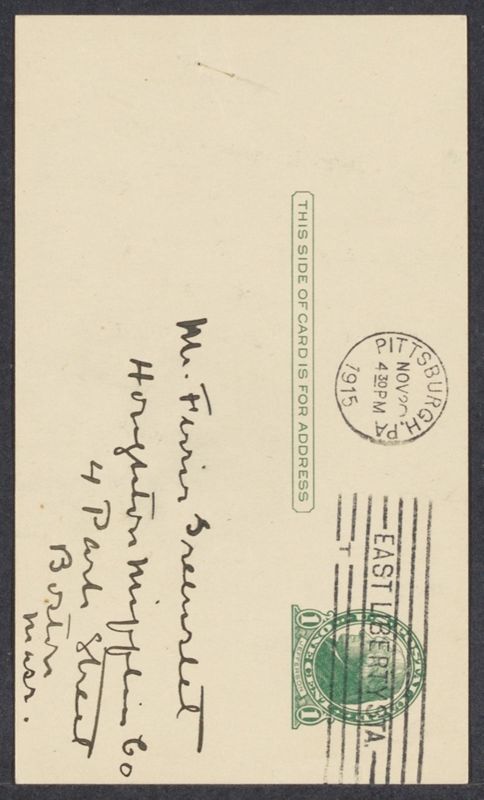 THIS SIDE OF CARD IS FOR ADDRESS
PITTSBURGH, PA.
NOV 20
4 30 PM
1915
EAST LIBERTY STA.
T
1 ONE CENT 1
Mr. Ferris Greenslet
Houghton Mifflin Co
4 Park Street
Boston
Mass.